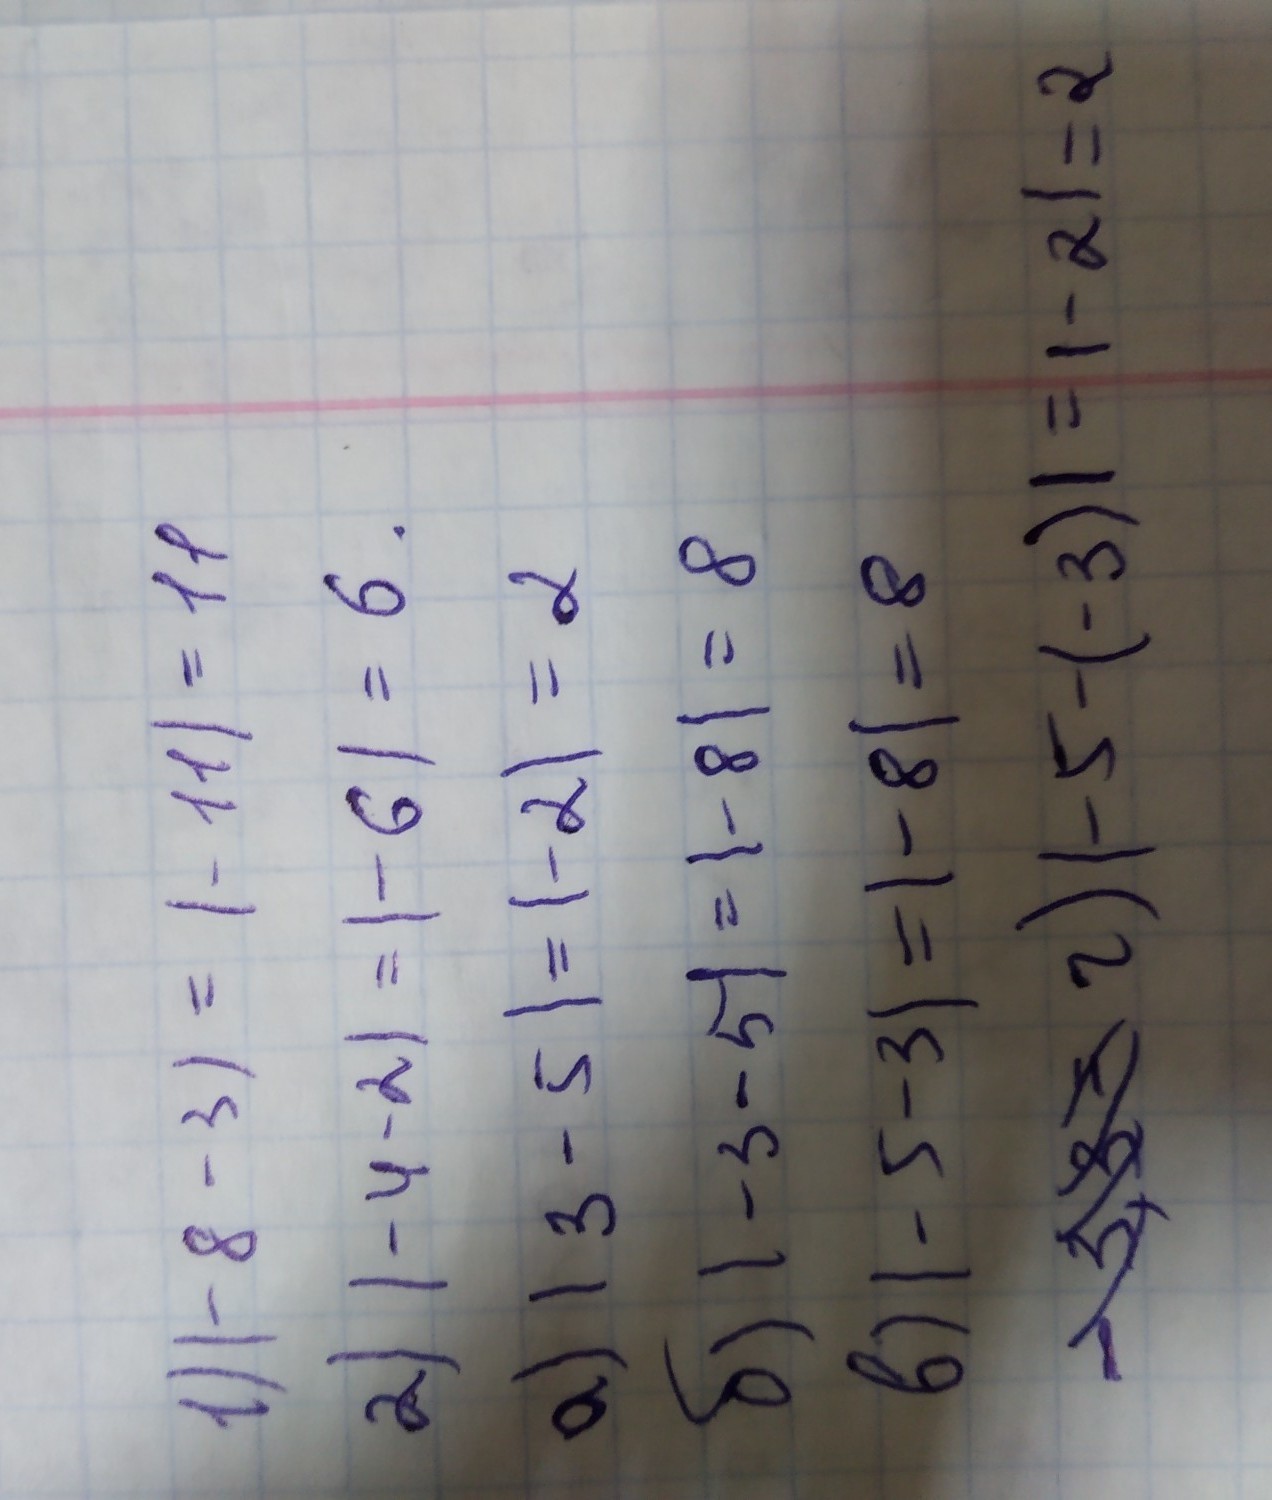 1) |-8-3) = |-11| = 11
2) |-4-2| = |-6| = 6.
а) |3-5| = |-2| = 2
б) |-3-5| = |-8| = 8
в) |-5-3| = |-8| = 8
г) |-5-(-3)| = |-2| = 2